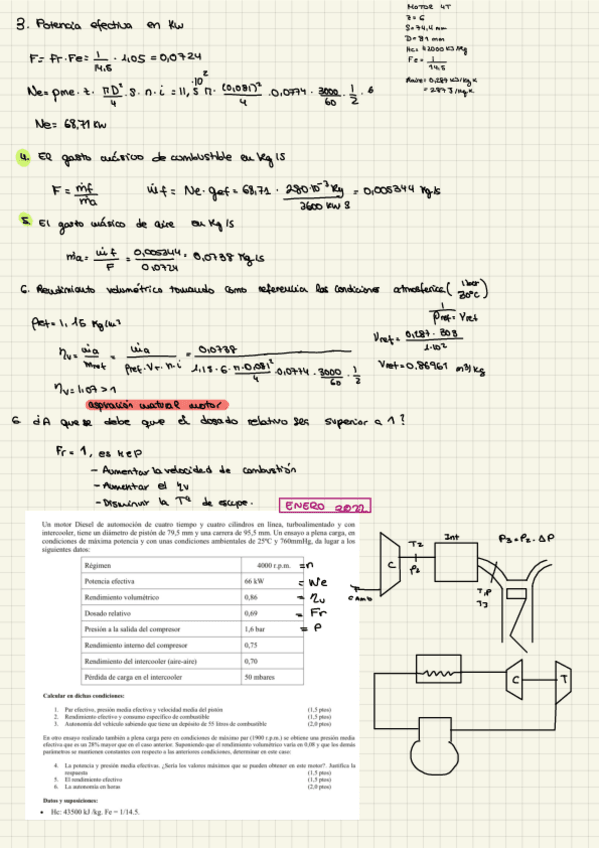 MOTOR 4T
Z = 6
S = 74,4 mm
D = 81 mm
Hc = 42000 KJ/Kg
Fe = 1/14,5
Raire = 0,287 KJ/kg K
= 287 J/kg K
3. Potencia efectiva en KW
F = Fr · Fe = 1/14,5 · 1,05 = 0,0724
Ne = pme · z · πD²/4 · S · n · i = 11,5 · 10² π · (0,081)²/4 · 0,0774 · 3000/60 · 1/2 · 6
Ne = 68,71 KW
4. El gasto másico de combustible en Kg/s
F = ṁf/ṁa ṁf = Ne · gef = 68,71 · 280·10⁻³ Kg/3600 KW S = 0,005344 Kg/s
5. El gasto másico de aire en Kg/s
ṁa = ṁf/F = 0,005344/0,0724 = 0,0738 Kg/s
6. Rendimiento volumétrico tomando como referencia las condiciones atmosférica (1 bar 30°C)
ρref = 1,15 Kg/m³
1/ρref = Vref
Vref = 0,287 · 303/1·10²
Vref = 0,86961 m³/Kg
ηv = ṁa/ṁref = ṁa/ρref · VT · n · i = 0,0738/1,15 · 6 · π·0,081²/4 · 0,0774 · 3000/60 · 1/2
ηv = 1,07 > 1
aspiración natural motor
6 ¿A que se debe que el dosado relativo sea superior a 1?
Fr = 1, es MEP
- Aumentar la velocidad de combustión
- Aumentar el ηv
- Disminuir la Tª de escape.
ENERO 2022
Un motor Diesel de automoción de cuatro tiempo y cuatro cilindros en línea, turboalimentado y con
intercooler, tiene un diámetro de pistón de 79,5 mm y una carrera de 95,5 mm. Un ensayo a plena carga, en
condiciones de máxima potencia y con unas condiciones ambientales de 25ºC y 760mmHg, da lugar a los
siguientes datos:
Régimen 4000 r.p.m. = n
Potencia efectiva 66 kW = Ne
Rendimiento volumétrico 0,86 = ηv
Dosado relativo 0,69 = Fr
Presión a la salida del compresor 1,6 bar = P
Rendimiento interno del compresor 0,75
Rendimiento del intercooler (aire-aire) 0,70
Pérdida de carga en el intercooler 50 mbares
T2
P2
C
Int
P3 = P2 - ΔP
T3
C
T
Calcular en dichas condiciones:
1. Par efectivo, presión media efectiva y velocidad media del pistón (1,5 ptos)
2. Rendimiento efectivo y consumo específico de combustible (1,5 ptos)
3. Autonomía del vehículo sabiendo que tiene un depósito de 55 litros de combustible (2,0 ptos)
En otro ensayo realizado también a plena carga pero en condiciones de máximo par (1900 r.p.m.) se obtiene una presión media
efectiva que es un 28% mayor que en el caso anterior. Suponiendo que el rendimiento volumétrico varía en 0,08 y que los demás
parámetros se mantienen constantes con respecto a las anteriores condiciones, determinar en este caso:
4. La potencia y presión media efectivas. ¿Sería los valores máximos que se pueden obtener en este motor?. Justifica la
respuesta (1,5 ptos)
5. El rendimiento efectivo (1,5 ptos)
6. La autonomía en horas (2,0 ptos)
Datos y suposiciones:
• Hc: 43500 kJ /kg. Fe = 1/14.5.